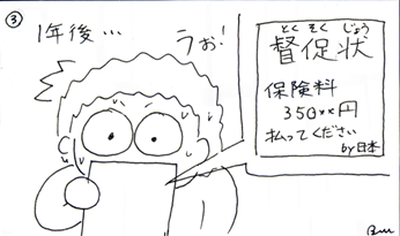 ③
1年後…
うぉ!
とく そく じょう
督促状
保険料
350**円
払ってください
by日本